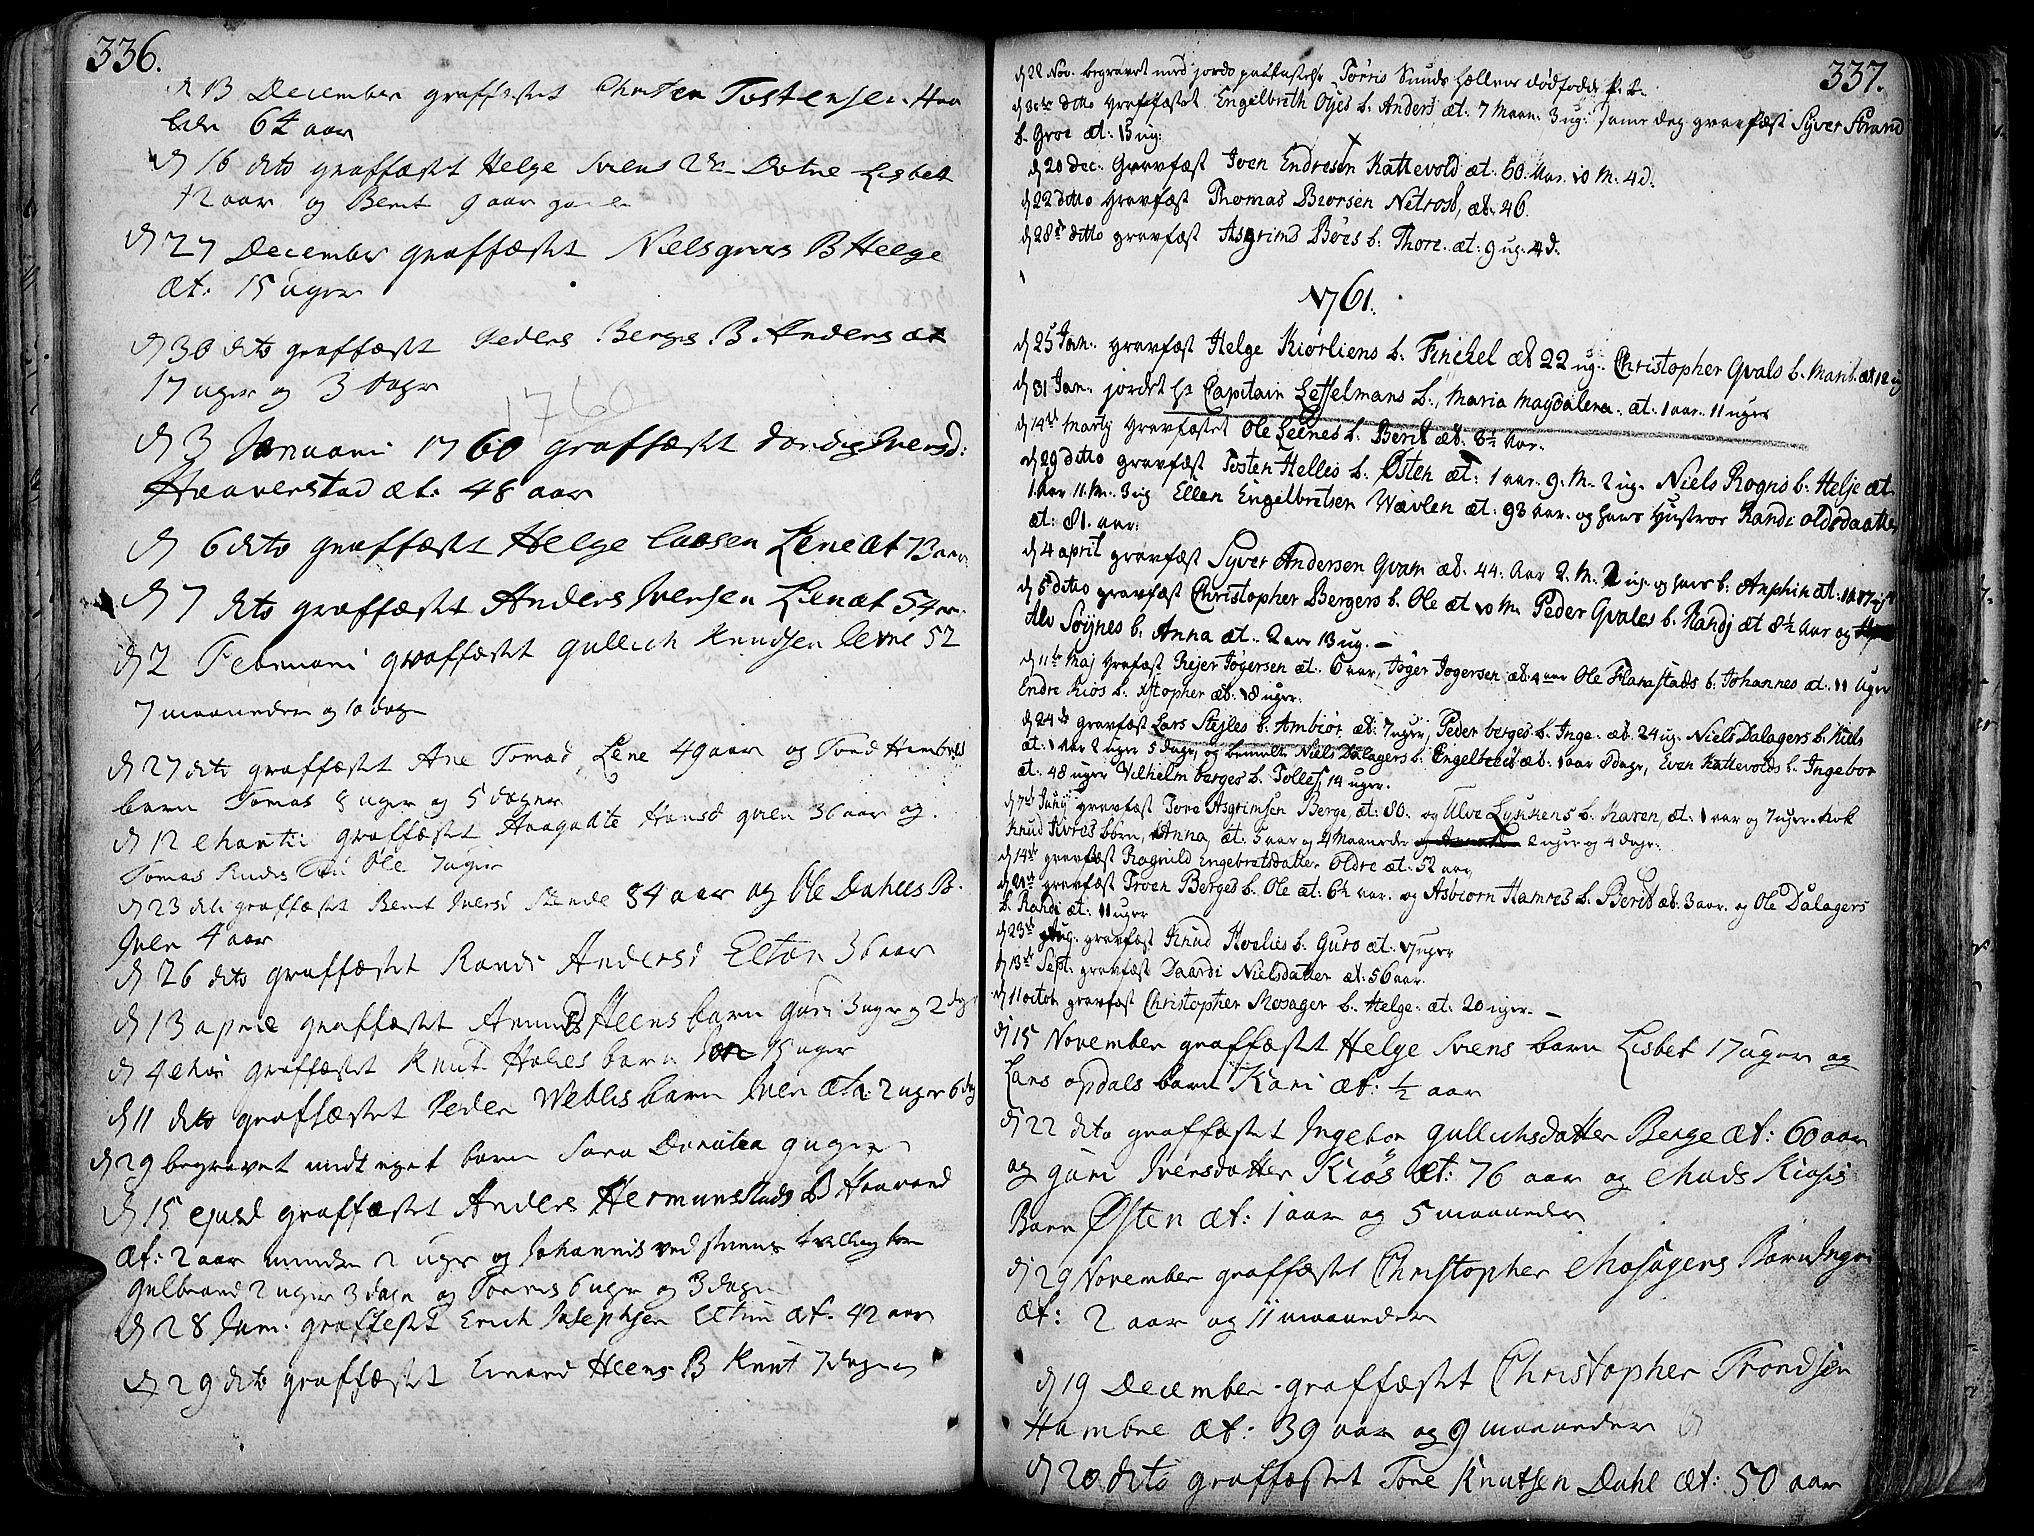 336.
d 13 December graffæstet Christen Tostensen Haa
64 aar
d 16 dito graffæstet Helge Svens 2de Døtre Lisbet
12 aar og Berit 9 aar
d 27 December graffæstet Niels B Helge
æt. 15 uger
d 30 dito graffæstet Peders Bergs B. Anders æt
17 uger og 3 dage
1760
d 3 Januari 1760 graffæstet Iversd:
Haaverstad æt. 48 aar
d 6 dito graffæstet Helge Larsen Lene æt 73 aar
d 7 dito graffæstet Anders Iversen Lien æt 54 aar
d 2 Februari graffæstet Gullich Knudsen 52
7 maaneder og 10 dage
d 27 dito graffæstet Ane Tomasd. Lene 49 aar og Tord Hambres
barn Tomas 8 uger og 5 dager
d 12 Marti graffæstet Aagaatte Hansd 36 aar og
Tomas Ruds Ole 7 uger
d 23 dito graffæstet Berit Iversd 84 aar og Ole Dahles B.
Iver 4 aar
d 26 dito graffæstet Randi Andersd Elton 36 aar
d 13 april graffæstet Heens barn Guri 3 uger og 2 dage
d 4 Mai graffæstet Knut barn 15 uger
d 11 dito graffæstet Peder Weblis barn Iver æt. 2 uger 6 dag
d 29 begravet mit eget barn Sara Dorotea 9 uger
d 15 ejusd graffæstet Anders Hermunstads B Haavard
æt: 2 aar minder 2 uger og Johannis ved tvilling barn
Gulbrand 2 uger 3 dage og Torris 6 uger og 3 dage
d 28 Juni graffestet Erich Josephsen Elton æt. 42 aar
d 29 dito graffæstet Heens B Knut 7 dager
337.
d 22 Nov. begravet med jords paakastelse Torris Sunds dødfødte
d 30te ditto Gravfæstet Engelbreth Øyes b. Anders æt: 7 Maan: 3 ug: same dag gravfæst Syver Strand
b. Groe æt: 15 ug:
d 20 Dec: Gravfæst Iven Endresen Kattevold æt: 60. Aar. 10 M. 4 d.
d 22 ditto Gravfæst Thomas Biorsen Netrost, æt. 46.
d 28de ditto gravfæst Asgrims Böes b. Thore. æt: 9 ug. 4 d.
1761.
d 25 Jan: gravfæst Helge Kiörliens b. Finchel æt 22 ug: Christopher Qvals b. Marit. æt 12 ug
d 31 Jan: jordet Hr Capitain Lesselmans b., Maria Magdalena. æt: 1 aar. 11 uger
d 14de Martij Gravfæstet Ole Leenes b. Berit æt. 3½ Aar.
d 29 ditto gravfæst Tosten Helles b. Østen æt: 1 aar. 9. M. 2 ug. Niels Rogns b. Helje æt
1 Aar 11. M. 3 ug Ellen Engelbretsen Wævlen æt. 93 Aar. og hans Hustroe Randi Oldsdaatter
æt: 81. aar:
d 4 april gravfæst Syver Andersen Qvam æt. 44. Aar 2. M. 2 ug. og hans b. Anphin æt:
d 5 ditto gravfæst Christopher Bergers b. Ole æt 10 M. Peder Qvales b. Randj æt 8½ Aar og
Alv Söynes b. Anna æt. 2 aar 13 ug. —
d 11te Maj Grafæst Rejer Jögersen æt. 6 aar, Jöger Jogersen æt. 4 aar Ole Flanstads b. Johannes æt. 11 Uger
Endre Kiös b. Xstopher æt. 18 uger.
d 24de gravfæst Lars Stejles b. Ambiör, æt. 7 uger, Peder berges b. Inge. æt. 24 ug. Niels Dalagers b. Niels
æt. 1 Aar 2 uger 5 dage, og bemelte Niels Dalagers b. Engelbreit æt. 1 aar 8 dage, Even Kattevolds b. Ingebor
æt. 48 uger Vilhelm berges b. Tolles, 14 uger.
d 7de Junij gravfæst Tore Asgrimsen Berge, æt. 80. og Ulve Lykkens b. Karen, æt. 1 aar og 7 uger.
Knud Kires børn, Anna, æt. 5 aar og 4 Maaneder 2 uger og 4 dage.
d 14de gravfæst Ragnild Engebretsdatter Oldre æt. 52 aar
d 21de gravfæst Troen Berges b. Ole æt. 6½ aar. og Asbiorn Hamres b. Berit æt. 3 aar. og Ole Dalagers
b. Randi æt: 11 uger
d 23de Aug. gravfæst Knud b. Guro æt. 17 uger
d 13de Sept: gravfæst Daardi Nielsdatter æt. 56 aar.
d 11 octob gravfæst Christopher Mosager b. Helge. æt. 20 uger. —
d 15 November graffæstet Helge Svens barn Lisbet 17 uger og
Lars opdals barn Kari æt: ½ aar
d 22 dito graffæstet Ingebor Gullichsdatter Berge æt: 60 aar
og Guri Iversdatter Kiös æt: 76 aar og Mads Kiösis
Barn Østen æt: 1 aar og 5 maaneder
d 29 November graffæstet Christopher Mosagers Barn Ingri
æt: 2 aar og 11 maaneder
d 19 December graffæstet Christopher Trondsen
Hambre æt: 39 aar og 9 maaneder
d 20 dito graffæstet Tore Knutsen Dahl æt: 50 aar